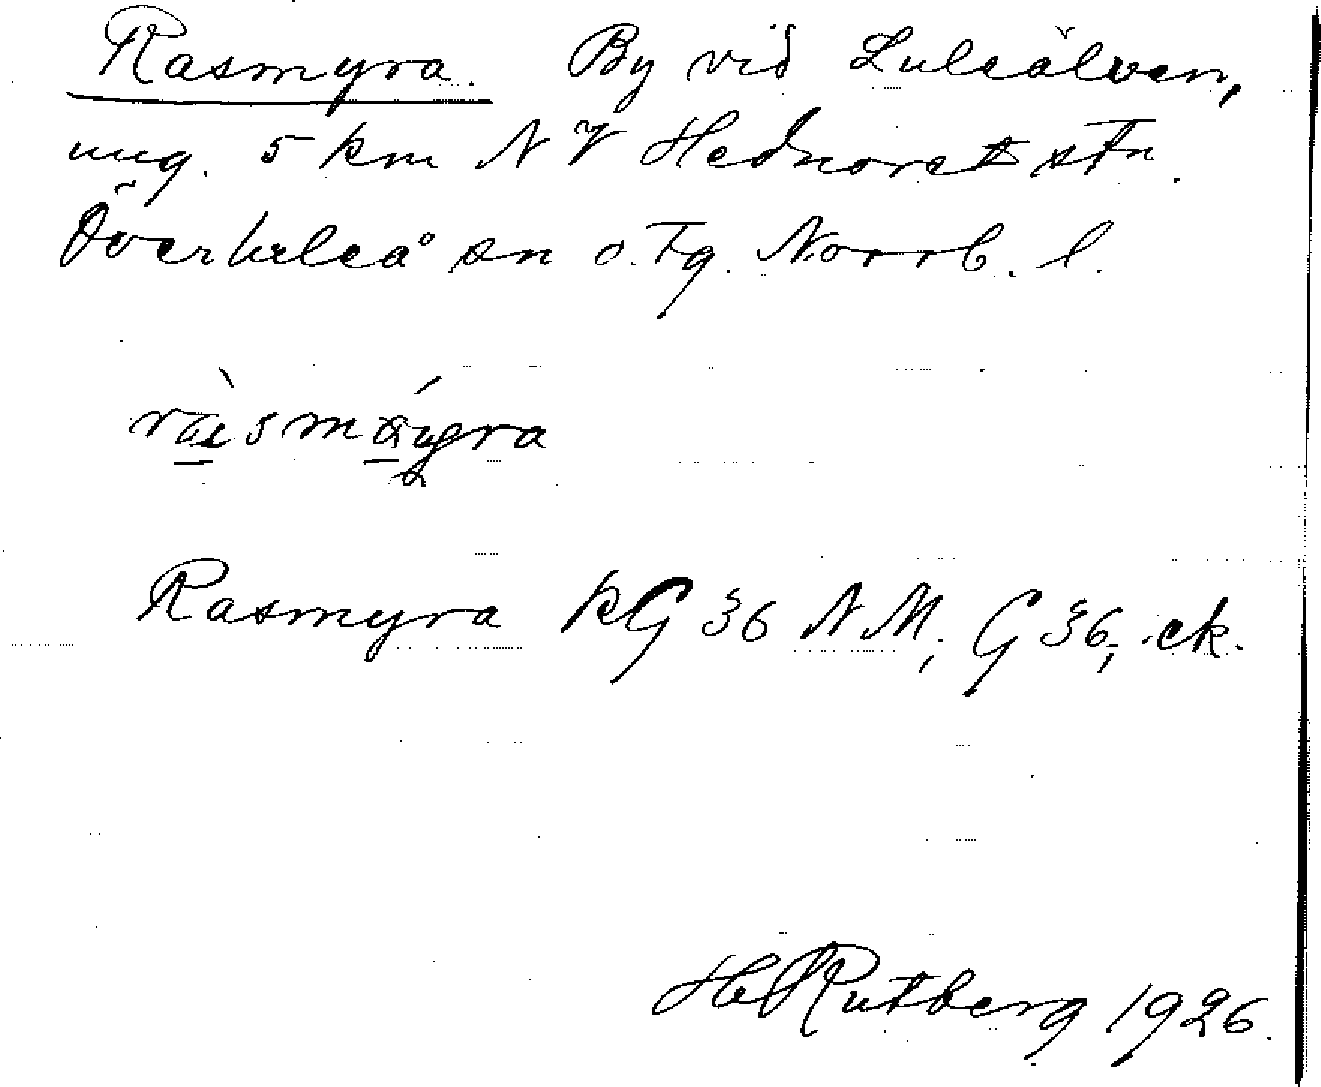 Rasmyra. By vid Luleälven,
ung. 5 km NV Hednoret stn.
Överluleå sn o. Tg. Norrb. l.
Rasmyra kG 36 NM; G 36; ek.
H Rutberg 1926.